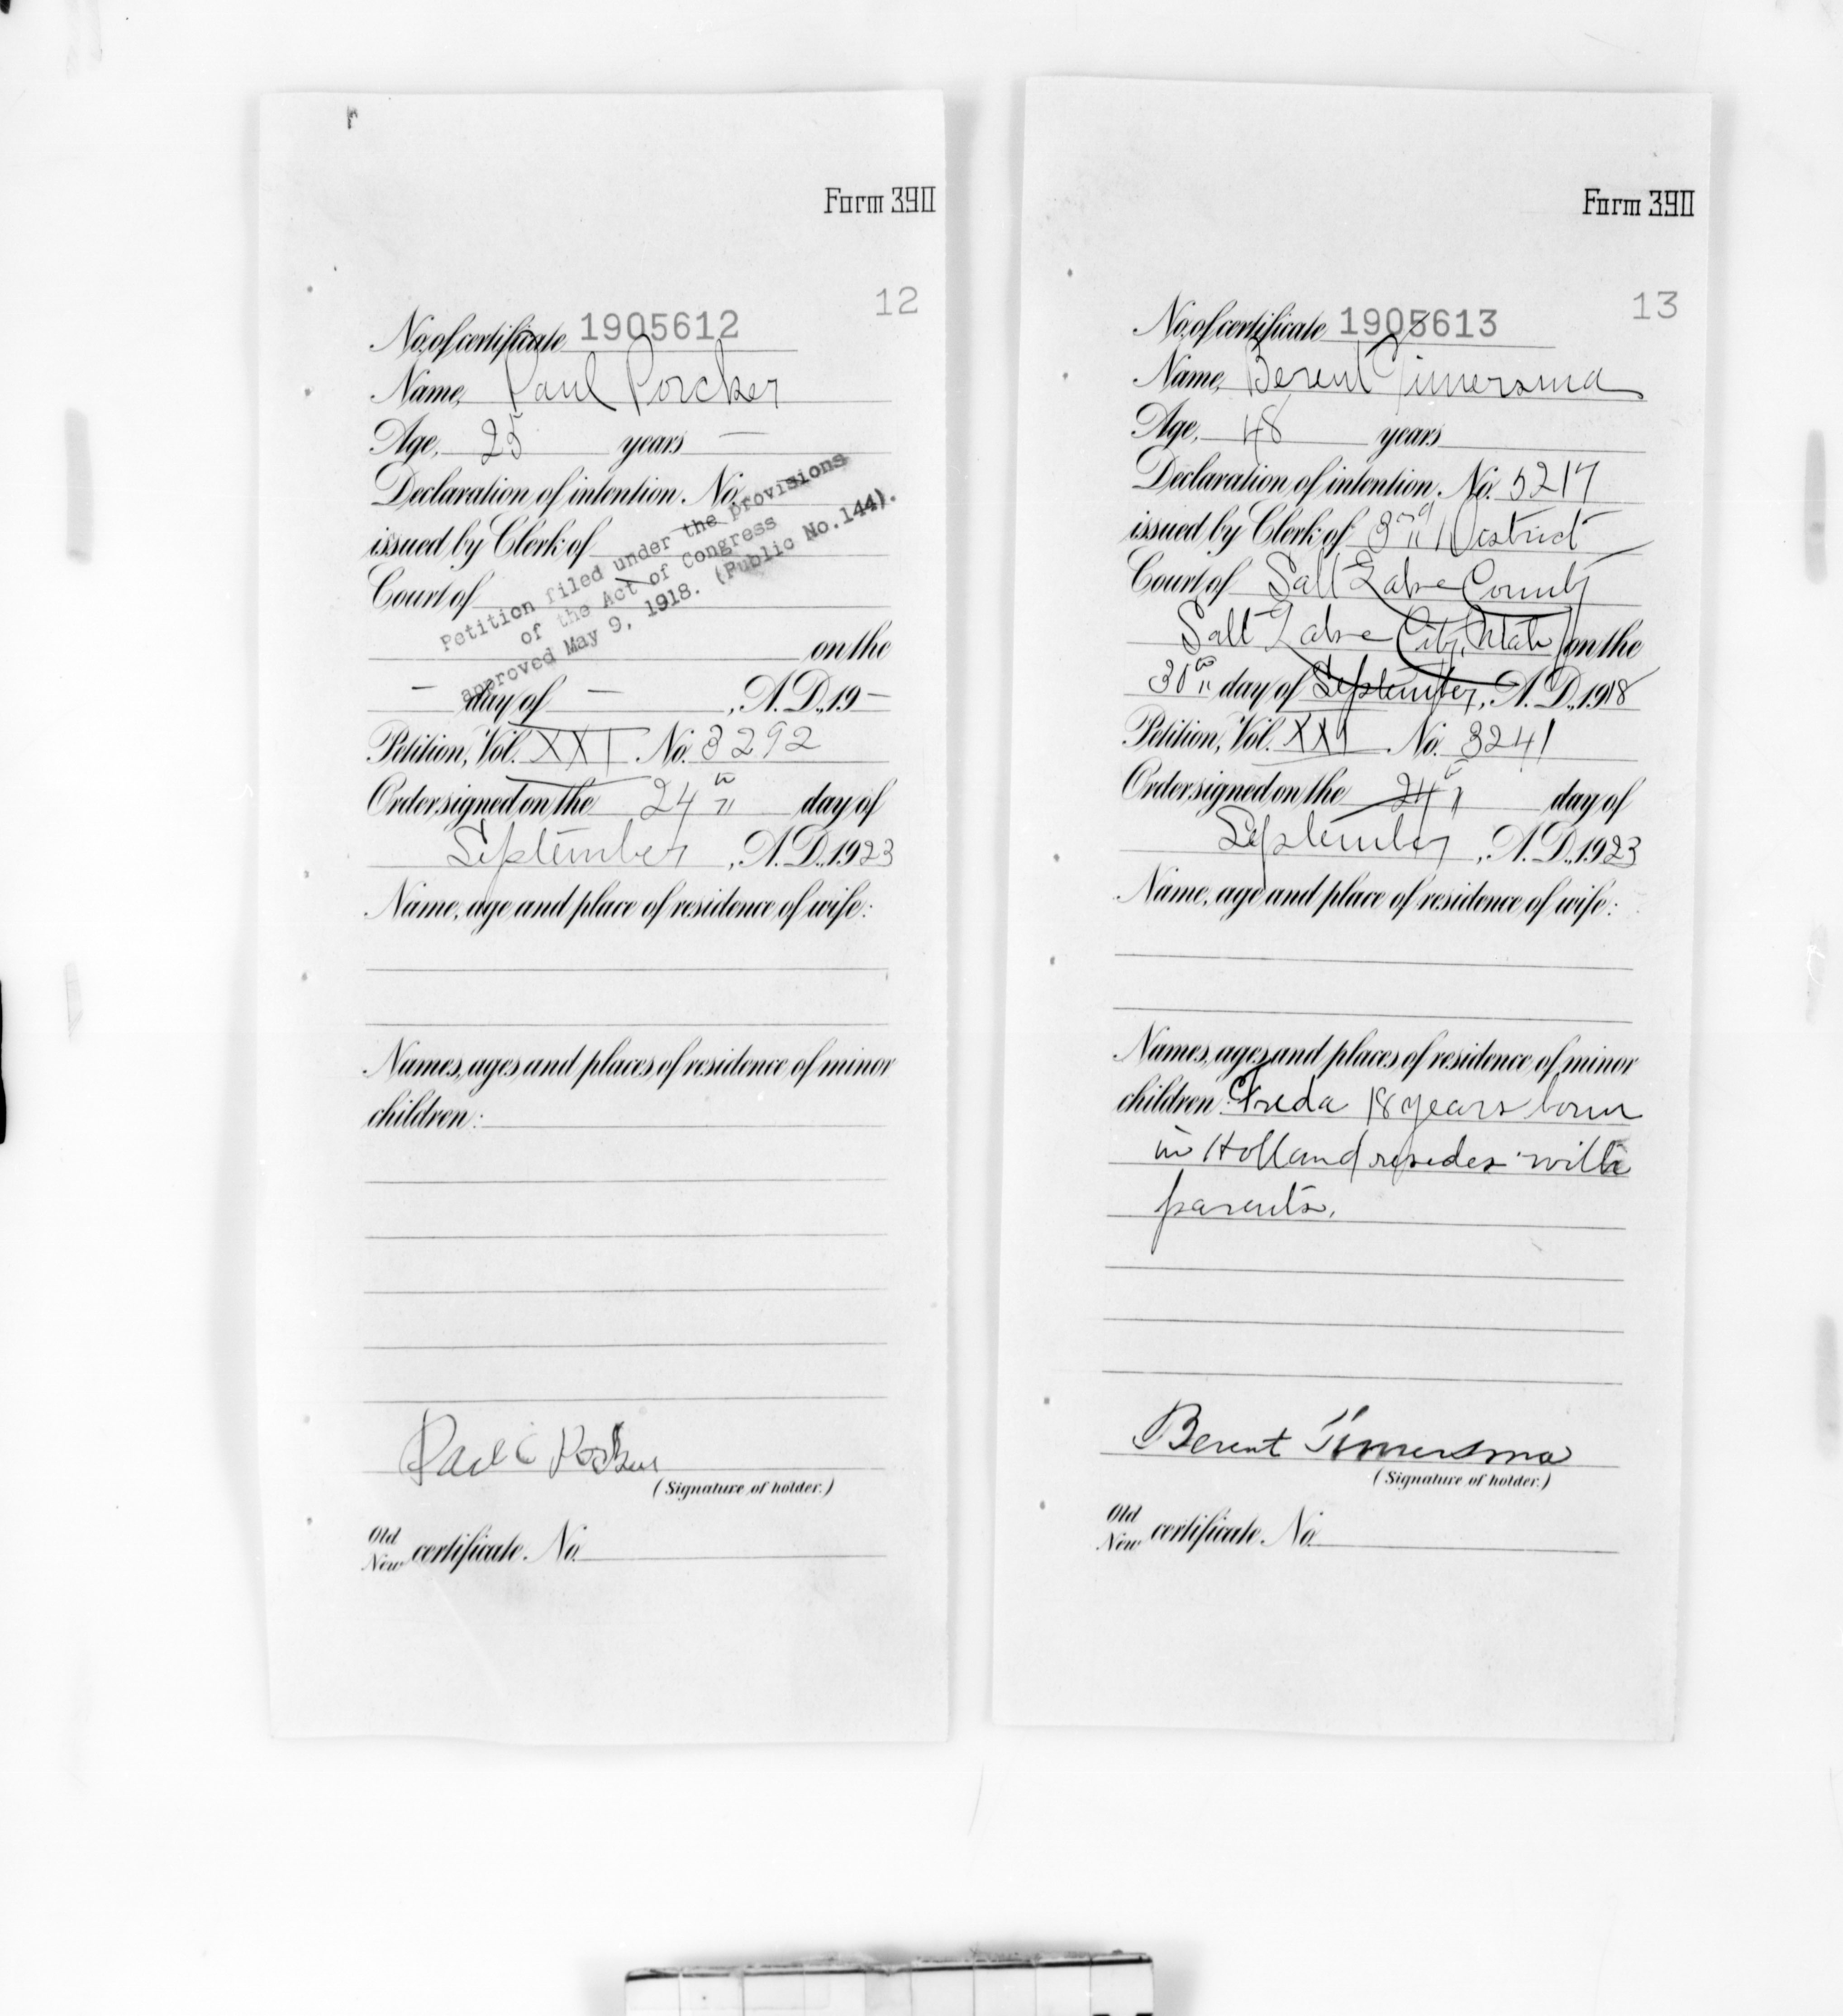 Form 390
12
No. of certificate 1905612
Name, Paul Porcker
Age, 25 years —
Declaration of intention, No.
issued by Clerk of
Court of
Petition filed under the provisions
of the Act of Congress
approved May 9, 1918. (Public No.144).
on the
— day of — , A.D., 19—
Petition, Vol. XXI No. 3292
Order signed on the 24th day of
September , A.D., 1923
Name, age and place of residence of wife:
Names, ages and places of residence of minor
children:
Paul
(Signature of holder.)
Old
New certificate, No.
Form 390
13
No. of certificate 1905613
Name, Berent Timersma
Age, 48 years
Declaration of intention, No. 5217
issued by Clerk of 3rd District
Court of Salt Lake County
Salt Lake City, Utah on the
30th day of September, A.D., 1918
Petition, Vol. XXI No. 3241
Order signed on the 24th day of
September , A.D., 1923
Name, age and place of residence of wife:
Names, ages and places of residence of minor
children: Freda 18 years born
in Holland resides with
parents.
Berent Timersma
(Signature of holder.)
Old
New certificate, No.